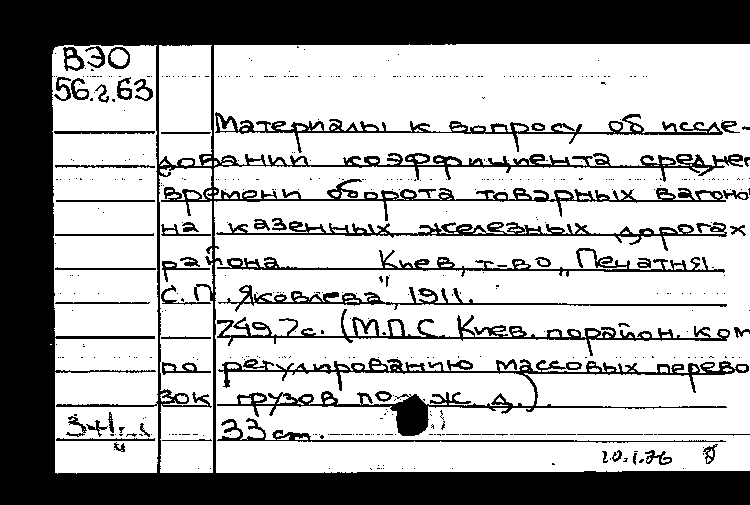 ВЭО
56.г.63
Материалы к вопросу об иссле-
довании коэффициента среднег
времени оборота товарных вагоно
на казенных железных дорогах
района Киев, т-во „Печатня
С.П. Яковлева", 1911.
7,49,7с. (М.П.С. Киев. порайон. ком
по регулированию массовых перево
зок грузов по ж. д.).
33 см.